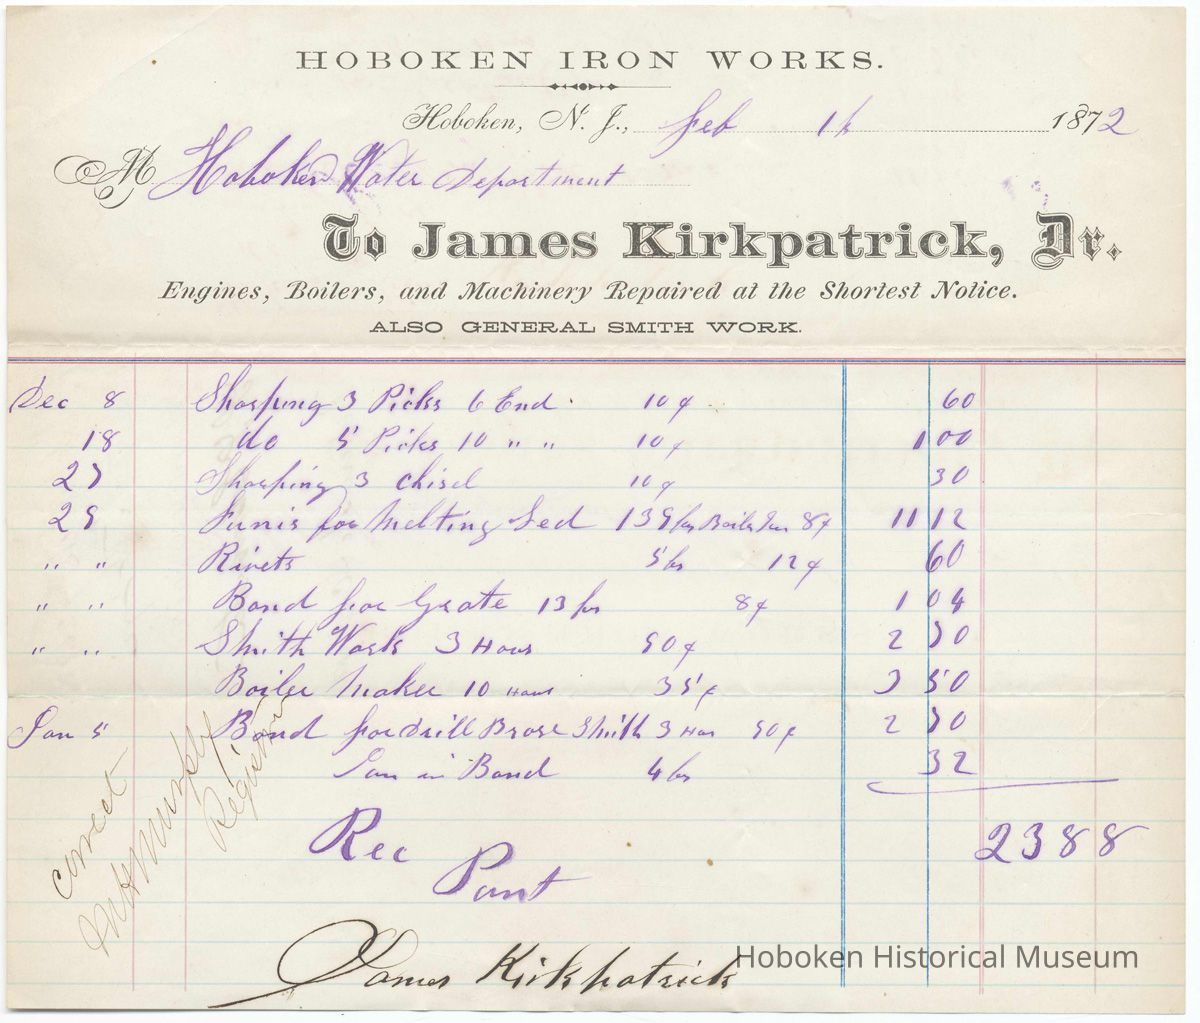 HOBOKEN IRON WORKS.
Hoboken, N. J., Feb 1st 1872
M Hoboken Water Department
To James Kirkpatrick, Dr.
Engines, Boilers, and Machinery Repaired at the Shortest Notice.
ALSO GENERAL SMITH WORK.
Dec 8 Sharping 3 Picks 6 End 10¢ 60
18 do 5 Picks 10 " " 10¢ 1 00
27 Sharping 3 chisel 10¢ 30
29 for Melting Led 139 lbs 8¢ 11 12
" " Rivets 5 lbs 12¢ 60
" " Band for Grate 13 lbs 8¢ 1 04
" " Smith Work 3 Hours 90¢ 2 70
Boiler Maker 10 Hours 35¢ 3 50
Jan 5 Band for Drill Smith 3 Hour 90¢ 2 70
in Band 4 lbs 32
23 88
Rec
Pamt
correct
Registrar
James Kirkpatrick
Hoboken Historical Museum